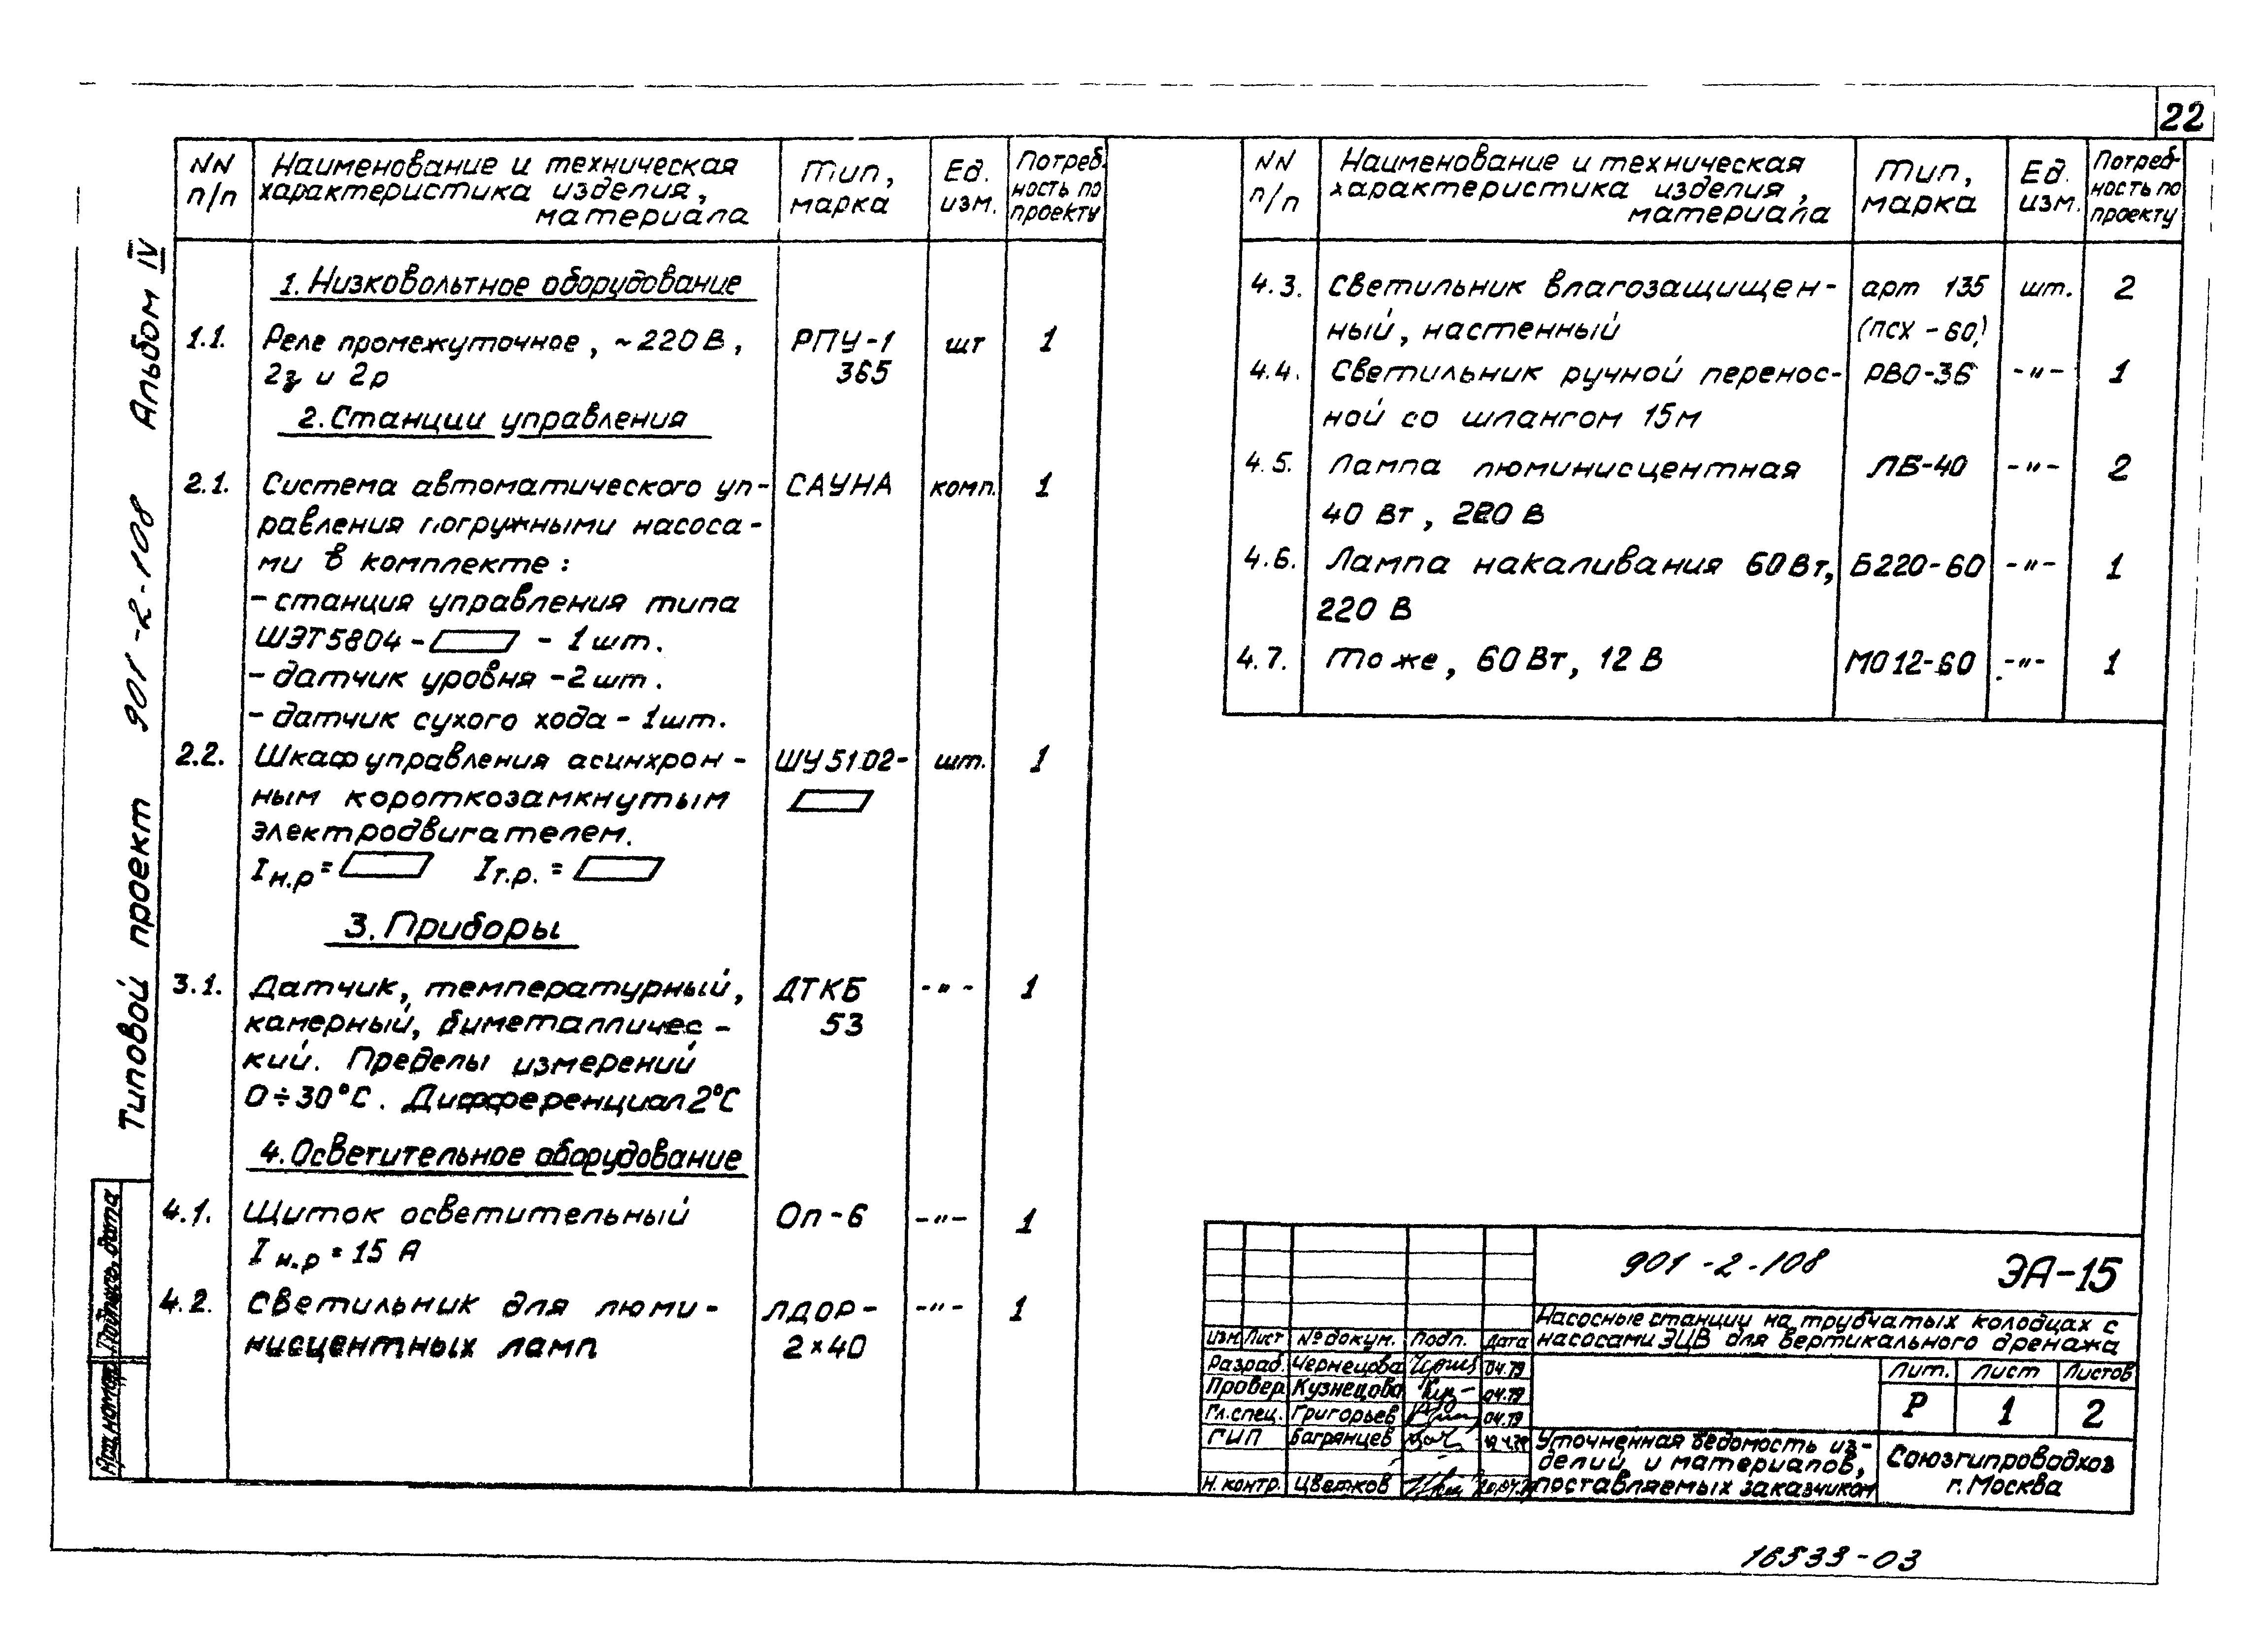 22
Типовой проект 901-2-108 Альбом IV
NN п/п
Наименование и техническая
характеристика изделия,
материала
Тип,
марка
Ед.
изм.
Потреб-
ность по
проекту
1. Низковольтное оборудование
1.1. Реле промежуточное, ~220 В, РПУ-1 шт 1
2з и 2р 365
2. Станции управления
2.1. Система автоматического уп- САУНА комп. 1
равления погружными насоса-
ми в комплекте:
- станция управления типа
ШЭТ5804- - 1 шт.
- датчик уровня - 2 шт.
- датчик сухого хода - 1 шт.
2.2. Шкаф управления асинхрон- ШУ5102- шт. 1
ным короткозамкнутым
электродвигателем.
Iн.р = Iт.р. =
3. Приборы
3.1. Датчик, температурный, ДТКБ -"- 1
камерный, биметалличес- 53
кий. Пределы измерений
0÷30°С. Дифференциал 2°С
4. Осветительное оборудование
4.1. Щиток осветительный Оп-6 -"- 1
Iн.р = 15 А
4.2. Светильник для люми- ЛДОР- -"- 1
нисцентных ламп 2×40
NN п/п
Наименование и техническая
характеристика изделия,
материала
Тип,
марка
Ед.
изм.
Потреб-
ность по
проекту
4.3. Светильник влагозащищен- арт 135 шт. 2
ный, настенный (ПСХ-60)
4.4. Светильник ручной перенос- РВО-36 -"- 1
ной со шлангом 15 м
4.5. Лампа люминисцентная ЛБ-40 -"- 2
40 Вт, 220 В
4.6. Лампа накаливания 60 Вт, Б220-60 -"- 1
220 В
4.7. То же, 60 Вт, 12 В МО12-60 -"- 1
Подпись, дата
901-2-108 ЭА-15
Насосные станции на трубчатых колодцах с
насосами ЭЦВ для вертикального дренажа
Изм. Лист № докум. Подп. Дата
Разраб. Чернецова 04.79
Провер. Кузнецова 04.79
Гл. спец. Григорьев 04.79
ГИП Багрянцев
Н. контр. Цветков
Лит. Лист Листов
Р 1 2
Уточненная ведомость из-
делий и материалов,
поставляемых заказчиком
Союзгипроводхоз
г. Москва
16533-03